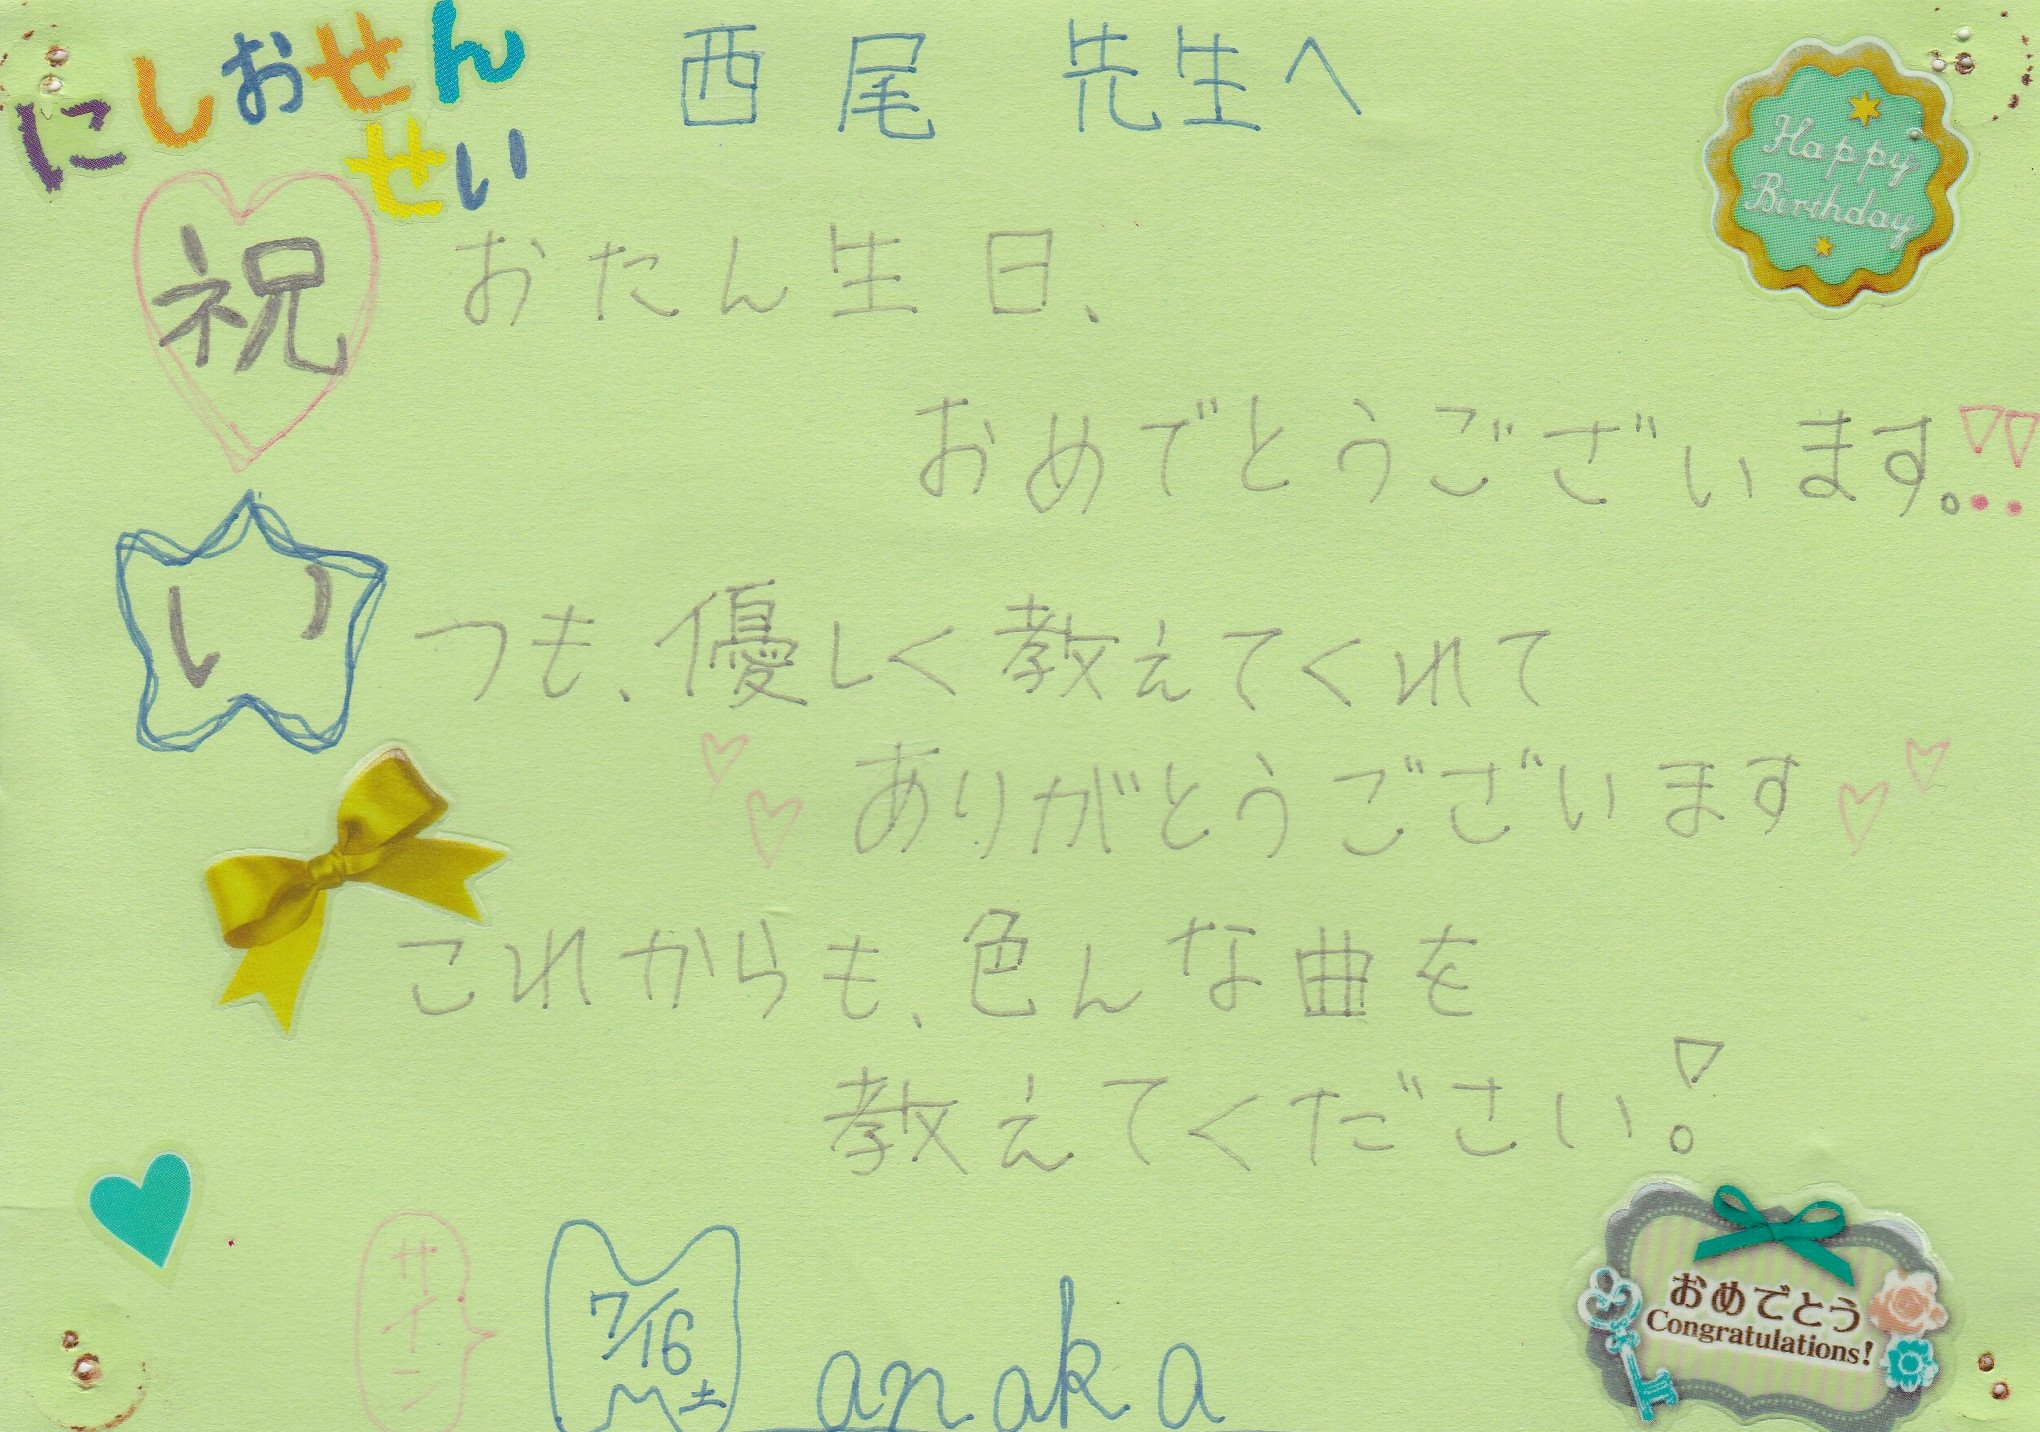 にしおせん
せい
西尾 先生へ
Happy
Birthday
祝 おたん生日、
おめでとうございます。!!
いつも、優しく教えてくれて
ありがとうございます
これからも、色んな曲を
教えてください!
サイン
7/16
土
anaka
おめでとう
Congratulations!